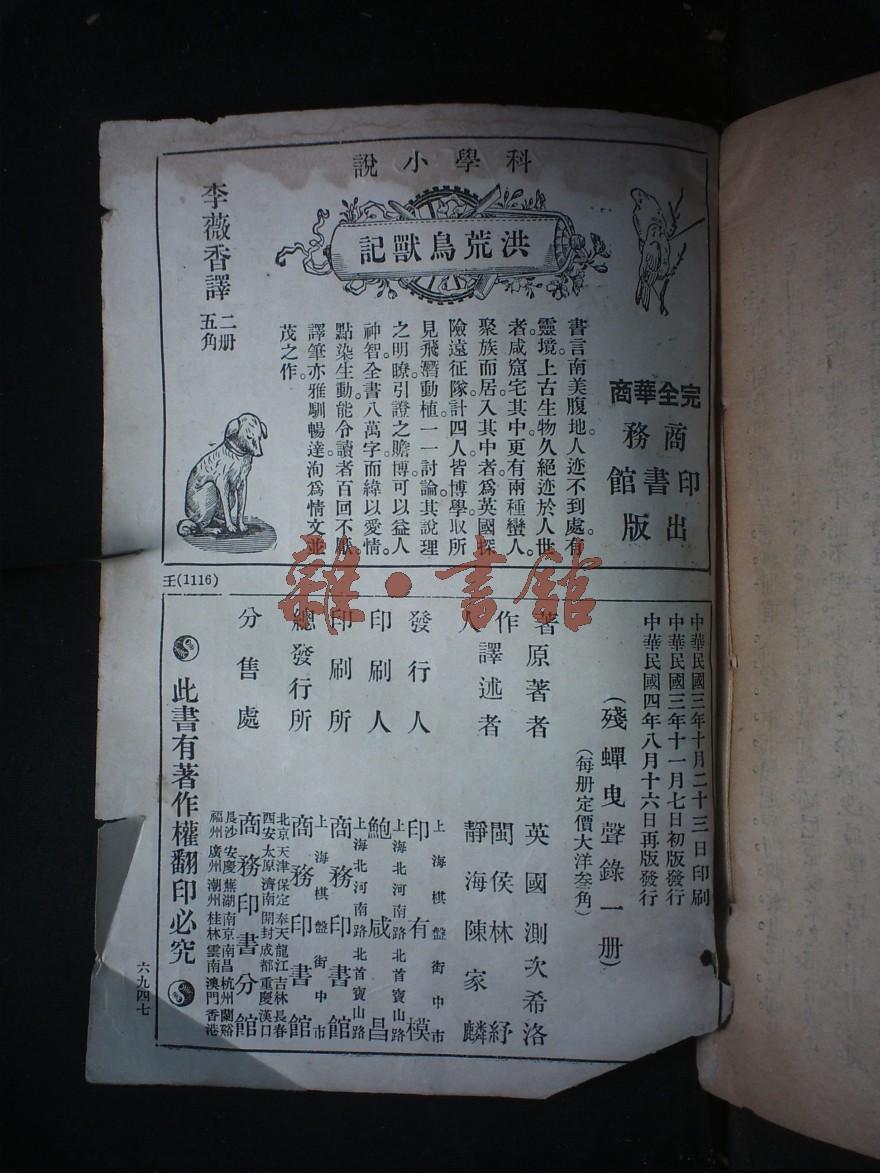 科學小說
洪荒鳥獸記
完全華商
商務印書館出版
書言南美腹地。人迹不到處。有
靈境。上古生物久絕迹於人世
者。咸窟宅其中。更有兩種蠻人。
聚族而居。入其中者。爲英國探
險遠征隊。計四人。皆博學。取所
見飛潛動植。一一討論。其說理
之明瞭。引證之贍博。可以益人
神智。全書八萬字。而緯以愛情。
點染生動。能令讀者百回不厭。
譯筆亦雅馴暢達。洵爲情文並
茂之作。
李薇香譯
二册
五角
王(1116)
中華民國三年十月二十三日印刷
中華民國三年十一月七日初版發行
中華民國四年八月十六日再版發行
(殘蟬曳聲錄一册)
(每册定價大洋叁角)
著作人
原著者 英國測次希洛
譯述者 閩侯林紓
靜海陳家麟
發行人 印有模
上海棋盤街中市
印刷人 鮑咸昌
上海北河南路北首寶山路
印刷所 商務印書館
上海北河南路北首寶山路
總發行所 商務印書館
上海棋盤街中市
分售處 商務印書分館
北京天津保定奉天龍江吉林長春
西安太原濟南開封成都重慶漢口
長沙安慶蕪湖南京南昌杭州蘭谿
福州廣州潮州桂林雲南澳門香港
此書有著作權翻印必究
六九四七
雜·書館